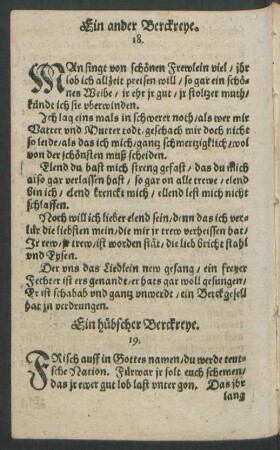 Ein ander Berckreye.
18.
MAn singt von schönen Frewlein viel / jhr
lob ich allzeit preisen will / so gar ein schö-
nes Weibe / jr ehr jr gut / jr stoltzer muth /
kündt ich sie vberwinden.
Ich lag eins mals in schwerer noth / als wer mir
Vatter vnd Mutter todt / geschach mir doch nicht
so leide / als das ich mich / gantz schmertzigklich / wol
von der schönsten muß scheiden.
Elend du hast mich streng gefast / das du mich
also gar verlassen hast / so gar on alle trewe / elend
bin ich / elend krenckt mich / ellend lest mich nicht
schlaffen.
Noch will ich lieber elend sein / denn das ich ver-
kür die liebsten mein / die mir jr trew verheissen hat /
Ir rew / jr trew / ist worden stät / die lieb bricht stahl
vnd Eysen.
Der vns das Liedlein new gesang / ein freyer
Fechter ist ers genandt / er hats gar woll gesungen /
Er ist schabab vnd gantz vnwerdt / ein Berckgesell
hat jn verdrungen.
Ein hübscher Berckreye.
19.
FRisch auff in Gottes namen / du werde teut-
sche Nation. Fürwar jr solt euch schemen /
das jr ewer gut lob last vnter gon. Das jhr
lang